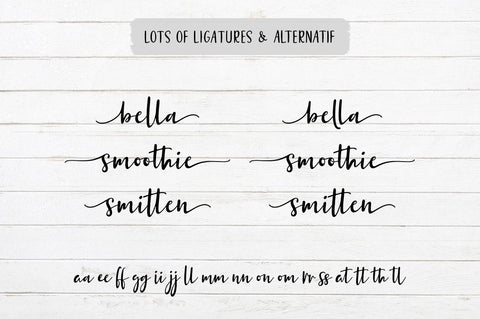 LOTS OF LIGATURES & ALTERNATIF
bella bella
smoothie smoothie
smitten smitten
aa ee ff gg ii jj ll mm nn on om rr ss at tt th tl